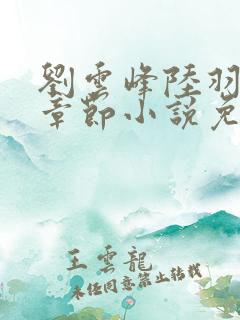 劉雲峰陸羽
章節小說免
王雲龍
未經同意禁止轉載